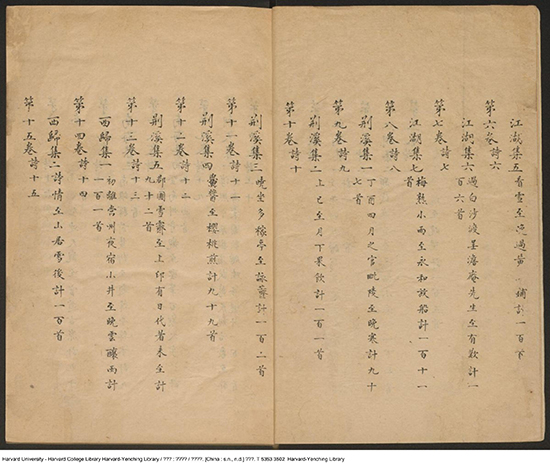 江湖集五看雪至晚過黃 補計一百丁
第六卷詩六
江湖集六過白沙渡至澹庵先生至有歎計一
百六首
第七卷詩七
江湖集七梅熟小雨至永和放船計一百十一
首
第八卷詩八
荆溪集一丁酉四月之官毗陵至晚寒計九十
七首
第九卷詩九
荆溪集二上巳至月下果飲計一百一首
第十卷詩十
荆溪集三晚坐多稼亭至詠蘁計一百二首
第十一卷詩十一
荆溪集四至櫻桃煎計九十九首
第十二卷詩十二
荆溪集五郡圃雪霽至上印有日代者未至計
九十二首
第十三卷詩十三
西歸集一初離常州夜宿小井至晚雲釀雨計
一百一首
第十四卷詩十四
西歸集二詩情至山居雪後計一百首
第十五卷詩十五
Harvard University - Harvard College Library Harvard-Yenching Library / ??? : ???? / ????. [China : s.n., n.d.] ???. T 5353 3502 Harvard-Yenching Library